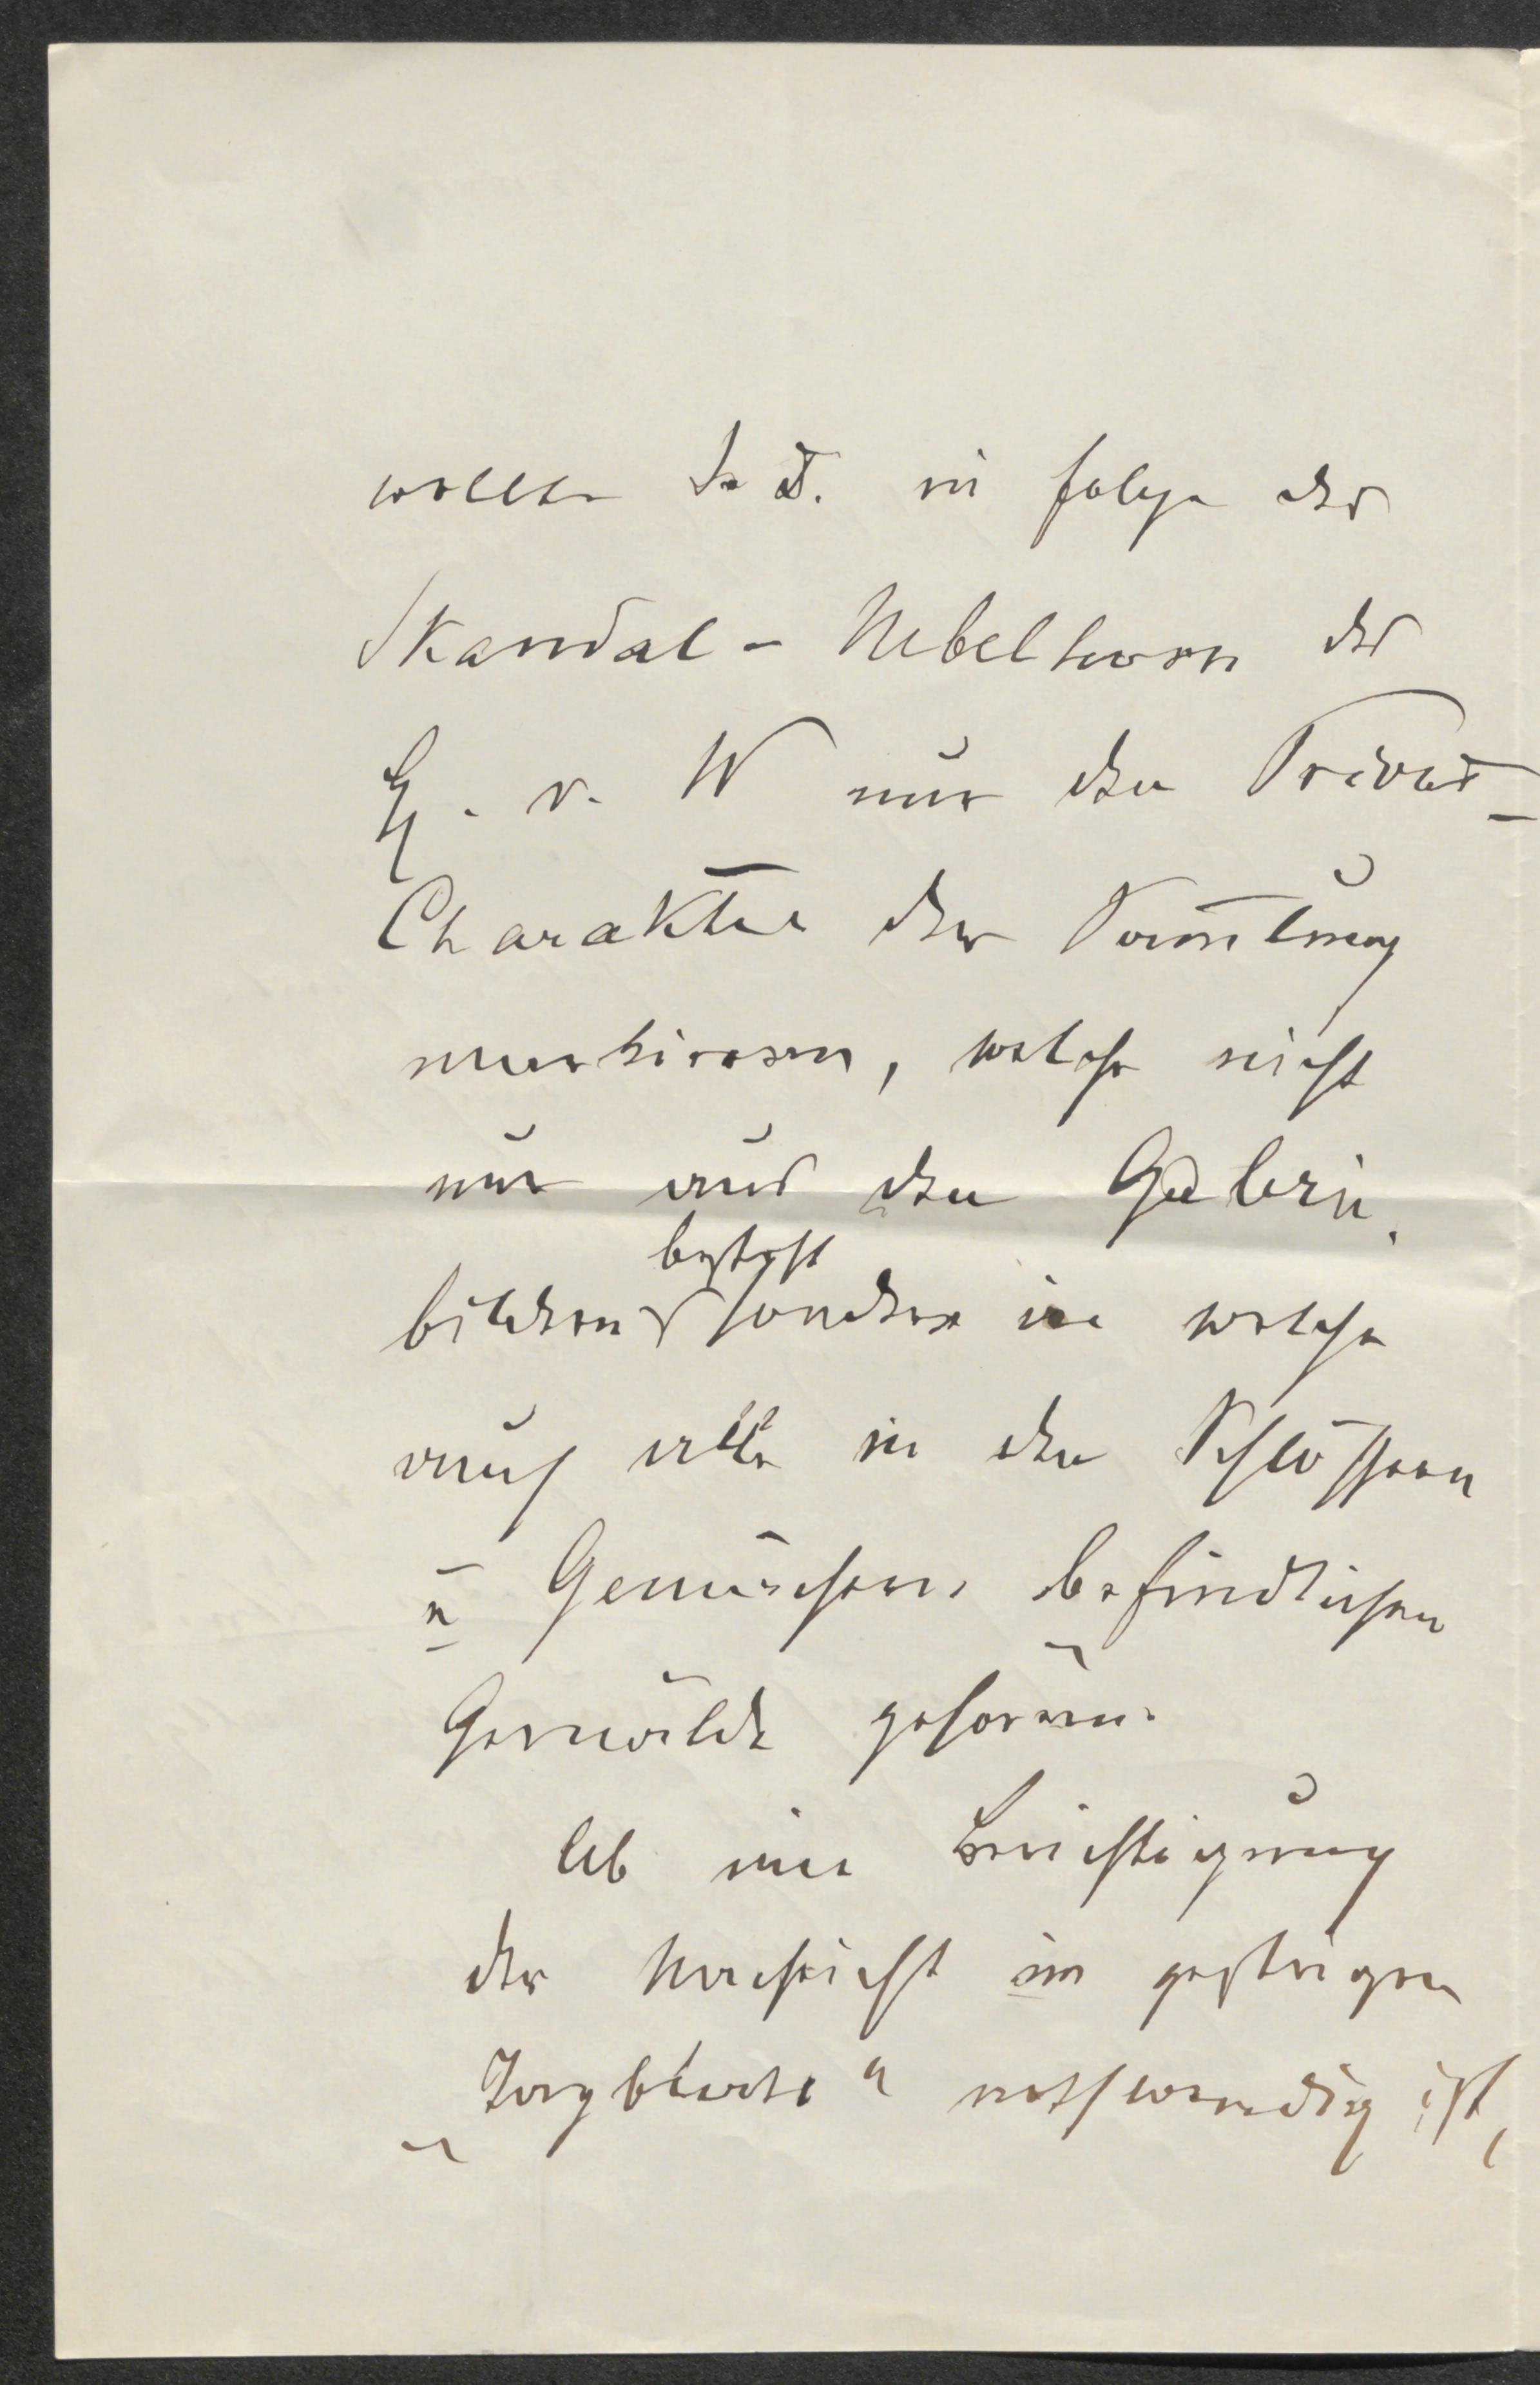 wollte S. D. in folge des
Skandal-Nebelhorn des
H. v. W nur den Privat-
Charakter der Samlung
markieren, welche nicht
nur aus den Galerie-
bildern besteht sondern in welche
auch alle in den Schlössern
u Gemächern befindlichen
Gemälde gehören.
Ob eine Berichtigung
der Nachricht im gestrigen
„Tagblatte“ nothwendig ist,